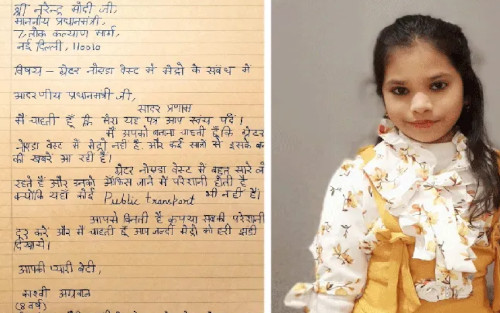 श्री नरेन्द्र मोदी जी,
माननीय प्रधानमंत्री,
7, लोक कल्याण मार्ग,
नई दिल्ली, 110010
विषय – ग्रेटर नोएडा वेस्ट में मेट्रो के संबंध में
आदरणीय प्रधानमंत्री जी,
सादर प्रणाम
मैं चाहती हूँ कि मेरा यह पत्र आप स्वंय पढ़ें।
मैं आपको बताना चाहती हूँ कि ग्रेटर
नोएडा वेस्ट में मेट्रो नहीं है और कई सालों से इसके
की खबरें आ रही हैं।
ग्रेटर नोएडा वेस्ट में बहुत सारे
रहते हैं और उनको ऑफिस जाने में परेशानी होती है
क्योंकि यहाँ कोई Public transport भी नहीं है।
आपसे विनती है कृपया सबकी परेशानी
दूर करें और मैं चाहती हूँ आप जल्दी मेट्रो को हरी झंडी
दिखायें।
आपकी प्यारी बेटी,
अग्रवाल
(8 वर्ष)